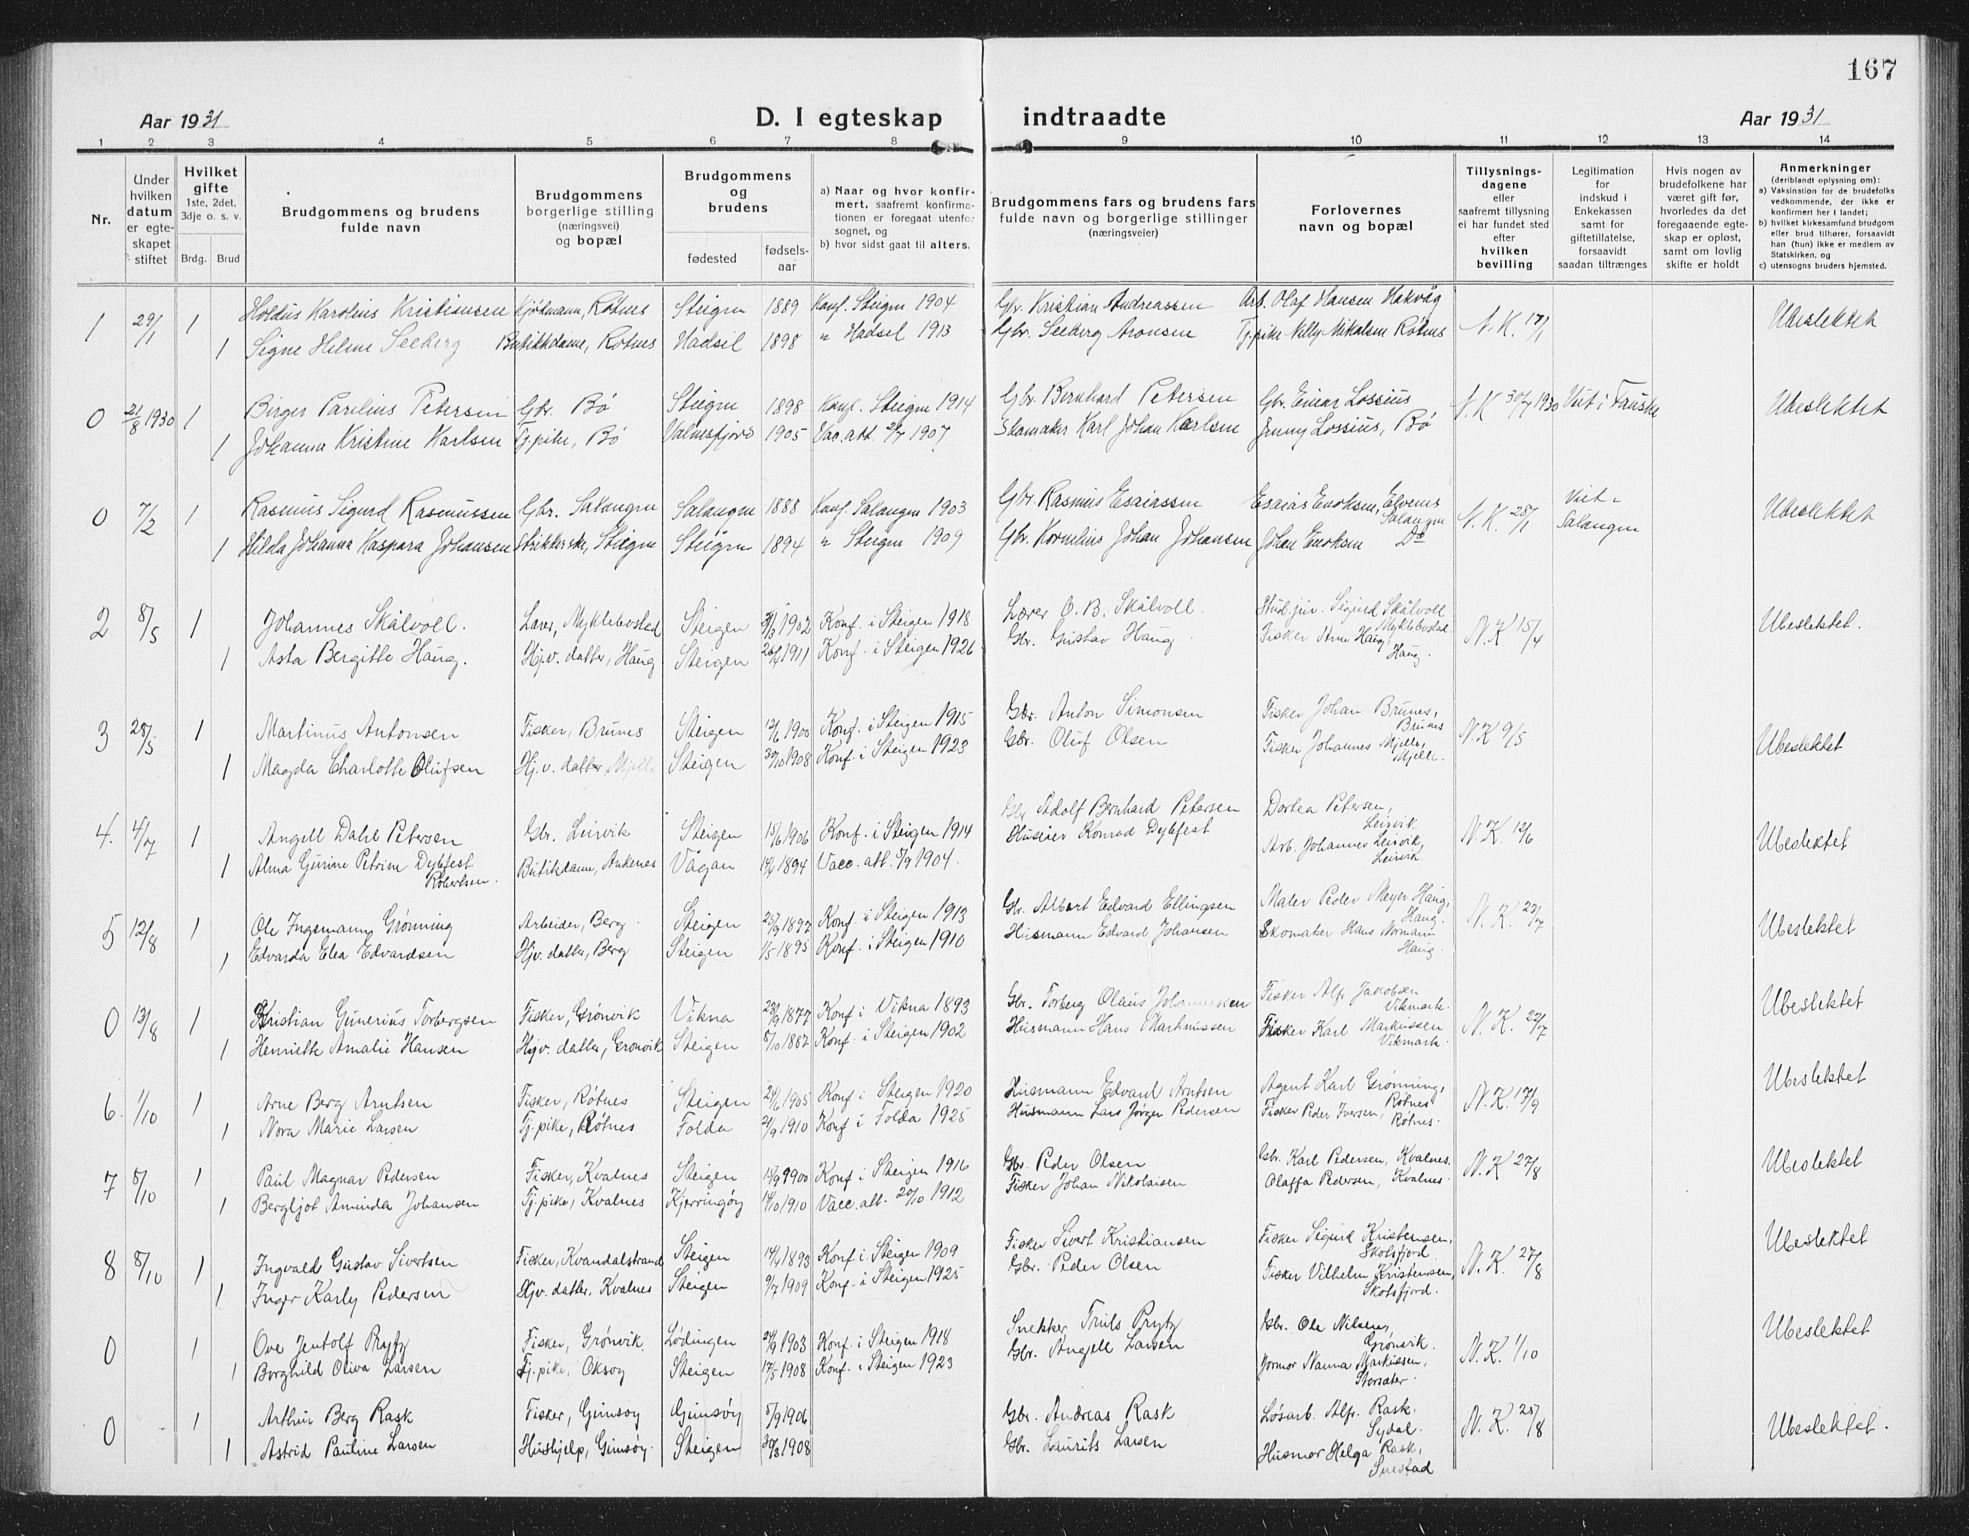 167
Aar 1931 D. I egteskap indtraadte Aar 1931
1 2 3 4 5 6 7 8 9 10 11 12 13 14
Nr.
Under hvilken datum er egteskapet stiftet
Hvilket gifte 1ste, 2det, 3dje o. s. v.
Brdg. Brud
Brudgommens og brudens fulde navn
Brudgommens borgerlige stilling (næringsvei) og bopæl
Brudgommens og brudens
fødested
fødselsaar
a) Naar og hvor konfirmert, saafremt konfirmationen er foregaat utenfor sognet, og
b) hvor sidst gaat til alters.
Brudgommens fars og brudens fars fulde navn og borgerlige stillinger (næringsveier)
Forlovernes navn og bopæl
Tillysningsdagene eller saafremt tillysning ei har fundet sted efter hvilken bevilling
Legitimation for indskud i Enkekassen samt for giftetillatelse, forsaavidt saadan tiltrænges
Hvis nogen av brudefolkene har været gift før, hvorledes da det foregaaende egteskap er opløst, samt om lovlig skifte er holdt
Anmerkninger (deriblandt oplysning om):
a) Vaksination for de brudefolks vedkommende, der ikke er konfirmert her i landet;
b) hvilket kirkesamfund brudgom eller brud tilhører, forsaavidt han (hun) ikke er medlem av Statskirken, og
c) utensogns bruders hjemsted.
1 29/1 1 Karolius Kristiansen Kjøbmann, Røtnes Steigen 1889 Konf. Steigen 1904 Gbr. Kristian Andreassen Arb. Olaf Hansen Hakvåg N.K. 17/1 Ubeslektet
1 Signe Helene Seeberg Butikkdame, Røtnes Hadsel 1898 " Hadsel 1913 Gbr. Seeberg Aronsen Tj.pike Nelly Mikalsen Røtnes
0 21/8 1930 1 Birger Parelius Petersen Gbr. Bø Steigen 1898 Konf. Steigen 1914 Gbr. Bernhard Petersen Gbr. Einar Lossius N.K 30/7 1930 Viet i Fauske Ubeslektet
1 Johanna Kristine Karlsen Tj.pike, Bø Valnesfjord 1905 Vac. att. 2/7 1907 Skomaker Karl Johan Karlsen Jenny Lossius, Bø
0 7/2 1 Rasmus Sigurd Rasmussen Gbr. Salangen Salangen 1888 Konf. Salangen 1903 Gbr. Rasmus Esaiassen Esaias Enoksen, Elvenes Salangen N.K. 28/1 Viet i Salangen Ubeslektet
1 Hilda Johanna Kaspara Johansen Strikkerske, Steigen Steigen 1894 " Steigen 1909 Gbr. Kornelius Johan Johansen Johan Enoksen Do
2 8/5 1 Johannes Skålvoll. Laver, Myklebostad Steigen 31/3 1902 Konf. i Steigen 1918 Lærer O. B. Skålvoll. Stud. jur. Sigurd Skålvoll Myklebostad. N.K 15/4 Ubeslektet.
1 Asta Bergitte Haug. Hj.v. datter, Haug Steigen 1911 Konf. i Steigen 1926 Gbr. Gustav Haug. Fisker Arne Haug, Haug.
3 28/5 1 Martinus Antonsen Fisker, Brunes Steigen 12/6 1900 Konf. i Steigen 1915 Gbr. Anton Simonsen Fisker Johan Brunes, Brunes N.K 9/5 Ubeslektet
1 Magda Charlotte Olufsen Hj.v. datter Mjelle Steigen 30/10 1908 Konf. i Steigen 1923 Gbr. Oluf Olsen Fisker Johannes Mjelle, Mjelle.
4. 4/7 1 Angell Dahl Petersen Gbr. Leirvik Steigen 15/6 1906 Konf. i Steigen 1914 Gbr Adolf Bernhard Petersen Dortea Petersen, Leirvik N.K 12/6 Ubeslektet
1 Alma Gurine Petrine Dybfest Robertsen. Butikdame, Ankenes Vågan 1894 Vacc. att. 5/9 1904. Huseier Konrad Dybfest Arb. Johannes Leirvik, Leirvik
5 12/8 1 Ole Ingemann Grønning Arbeider, Berg Steigen 25/9 1897 Konf. i Steigen 1913 Gbr. Albert Edvard Ellingsen Maler Peder Meyer Haug, Haug. N.K. 23/7 Ubeslektet
1 Edvarda Elea Edvardsen Hj.v. datter, Berg Steigen 1/5 1895 Konf. i Steigen 1910 Husmann Edvard Johansen Skomaker Hans Normann Haug.
0 13/8 1 Kristian Gunerius Torbergsen Fisker, Grönvik Vikna 23/9 1877 Konf i Vikna 1893 Gbr. Torberg Olaus Johannessen Fisker Alf Jakobsen Vikmark. N.K. 22/7 Ubeslektet
1 Henriette Amalie Hansen Hj.v. datter, Grönvik Steigen 8/10 1887 Konf. i Steigen 1902 Husmann Hans Martinussen Fisker Karl Markussen Vikmark.
6. 1/10 1 Arne Berg Arntsen Fisker, Røtnes Steigen 24/6 1905 Konf i Steigen 1920 Husmann Edvard Arntsen Agent Karl Grønning, Røtnes N.K. 17/9 Ubeslektet
1 Nora Marie Larsen Tj.pike, Røtnes Folda 2/9 1910 Konf i Folda 1925 Husmann Lars Jørgen Pedersen Fisker Peder Iversen, Røtnes.
7 8/10 1 Paul Magnar Pedersen Fisker, Kvalnes Steigen 15/9 1900 Konf i Steigen 1916 Gbr. Peder Olsen Gbr. Karl Pedersen, Kvalnes. N.K 27/8 Ubeslektet
1 Bergljot Aminda Johansen Tj.pike, Kvalnes Kjerringøy 14/10 1910 Vacc. att. 20/10 1912 Fisker Johan Nikolaisen Olaffa Pedersen, Kvalnes.
8 8/10 1 Ingvald Gustav Sivertsen Fisker, Kvandalstrand Steigen 14/4 1893 Konf i Steigen 1909 Fisker Sivert Kristiansen Fisker Sigurd Kristensen, Skotsfjord N.K. 27/8 Ubeslektet
1 Inger Karly Pedersen Hj.v. datter, Kvalnes Steigen 9/7 1909 Konf. i Steigen 1925 Gbr. Peder Olsen Fisker Vilhelm Kristensen, Skotsfjord.
0 1 Ove Jentoft Prytz Fisker, Grønvik Lödingen 24/9 1903 Konf. i Steigen 1918 Snekker Truls Prytz Gbr. Ole Nilsen, Grönvik. N.K. 1/10 Ubeslektet
1 Borghild Oliva Larsen Tj.pike, Oksøy Steigen 17/5 1908 Konf. i Steigen 1923 Gbr. Angell Larsen Jormor Nanna Markussen, Storsæter.
0 1 Arthur Berg Rask Fisker, Gimsøy Gimsöy 5/9 1906 Gbr. Andreas Rask Løsarb. Alfr. Rask. Sydal. N.K. 25/8 Ubeslektet.
1 Astrid Pauline Larsen Hushjelp, Gimsöy. Steigen 30/3 1908 Gbr. Laurits Larsen Husmor Helga Rask,